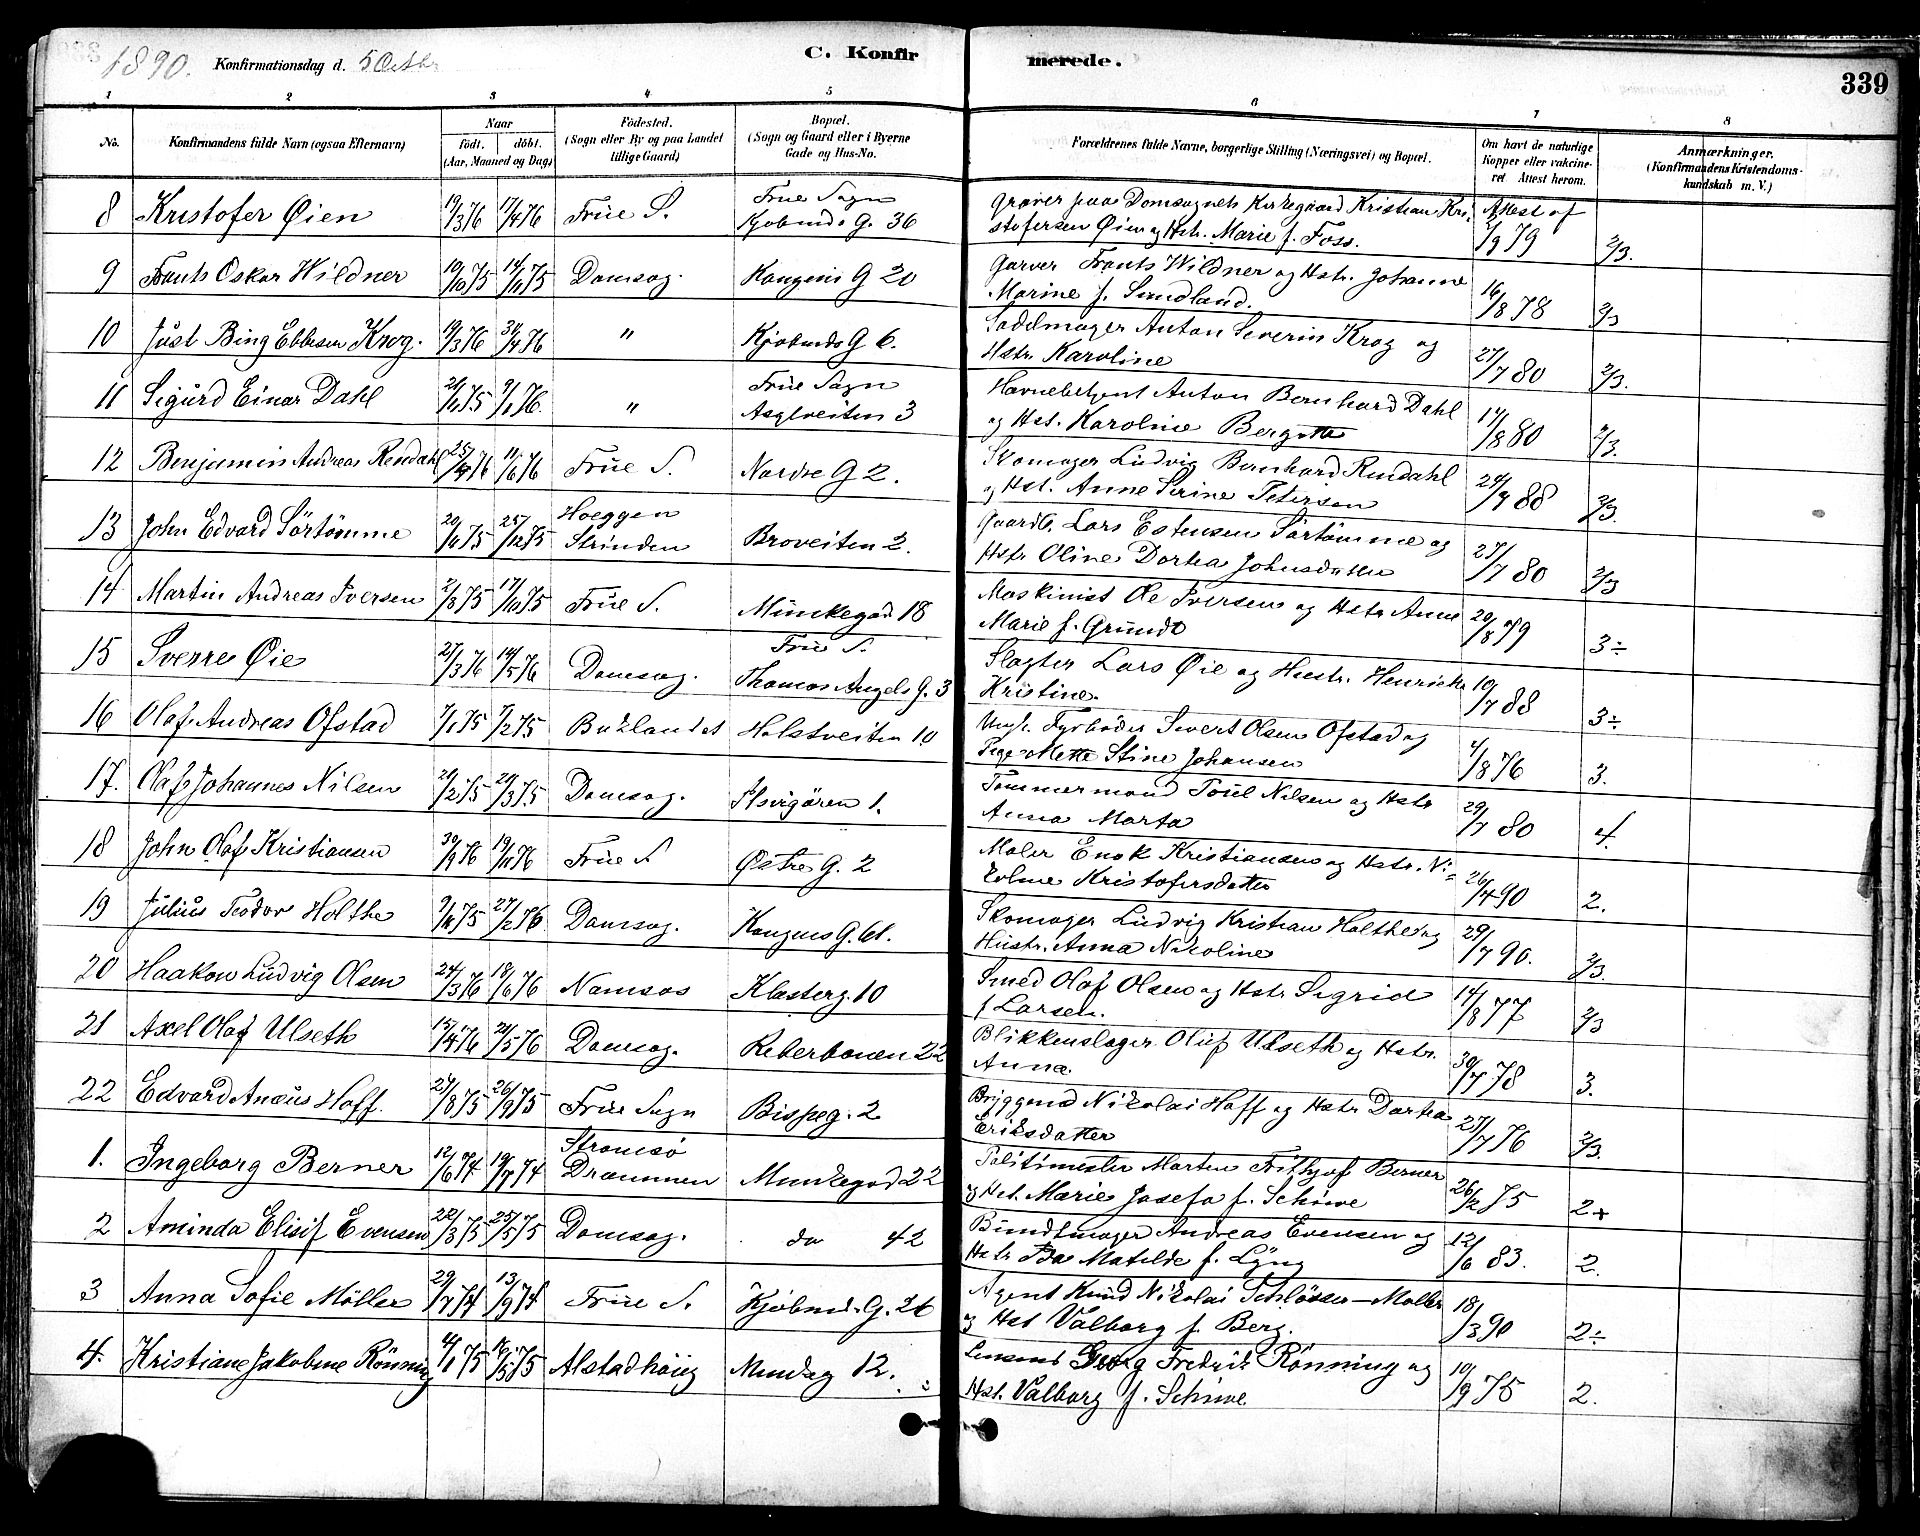 1890. Konfirmationsdag d. 5 Octbr C. Konfirmerede. 339
1 2 3 4 5 6 7 8
No. Konfirmandens fulde Navn (ogsaa Efternavn) Naar födt. döbt. (Aar, Maaned og Dag) Födested. (Sogn eller By og paa Landet tillige Gaard) Bopæl. (Sogn og Gaard eller i Byerne Gade og Hus-No. Forældrenes fulde Navne, borgerlige Stilling (Næringsvei) og Bopæl. Om havt de naturlige Kopper eller vakcineret. Attest herom. Anmærkninger. (Konfirmandens Kristendomskundskab m. V.)
8 Kristofer Øien 19/3 76 17/4 76 Frue S. Frue Sogn Kjøbmds G. 36 Graver paa Domsognets Kirkegaard Kristian Kristofersen Øien og Hstr. Marie f. Foss. Attest af 2/9 79 2/3.
9 Frants Oskar Wildner 19/10 75 14/11 75 Domsog. Kongens G 20 Garver Frants Wildner og Hstr. Johanne Marine f. Sundland. 16/8 78 2/3
10 Just Bing Ebbesen Krog. 19/3 76 30/4 76 " Kjøbmds G 6. Sadelmager Anton Severin Krog og Hstr. Karoline 27/7 80 2/3.
11 Sigurd Einar Dahl 21/11 75 9/1 76. " Frue Sogn Aslveiten 3 Havnebetjent Anton Bernhard Dahl og Hst. Karoline Bergitte 17/8 80 2/3.
12 Benjamin Andreas Rendahl 25/4 76 11/6 76 Frue S. Nordre G 2. Skomager Ludvig Bernhard Rendahl og Hst. Anne Serine Petersen 24/7 88 2/3.
13 John Edvard Sörtömme 20/11 75 25/12 75 Hoeggen Strinden Broveiten 2. Gaardb. Lars Estensen Sörtömme og Hstr Oline Dortea Johnsdatter 27/7 80 2/3
14 Martin Andreas Iversen 2/8 75 17/10 75 Frue S. Munkegad 18 Maskinist Ole Iversen og Hstr Anne Marie f. Grundt 20/8 79 3÷
15 Sverre Øie 27/3 76 14/5 76 Domsog. Frue S. Thomas Angels G. 3 Slagter Lars Øie og Hustr. Henrikke Kristine. 10/7 88 3÷
16 Olaf Andreas Ofstad 7/1 75 7/2 75 Baklandet Holstveiten 10 Ungk. Fyrböder Sivert Olsen Ofstad og Pige Mette Stine Johansen 4/8 76 3.
17. Olaf Johannes Nilsen 20/2 75 29/3 75. Domsog. Ilsvigören 1. Tömmermand Poul Nilsen og Hstr Anna Marta 29/7 80 4
18 John Olaf Kristiansen 30/9 76 19/11 76 Frue S Østre G. 2 Maler Enok Kristiansen og Hstr. Nikoline Kristofersdatter 26/4 90 2.
19 Julius Teodor Holthe 9/11 75 27/2 76 Domsog. Kongens G. 61. Skomager Ludvig Kristian Holthe og Hustr. Anna Nikoline 29/7 90. 2/3.
20 Haakon Ludvig Olsen 24/3 76 18/6 76 Namsos Klosterg. 10 Smed Olaf Olsen og Hstr Sigrid f. Larsen. 14/8 77 2/3
21 Axel Olaf Ulseth 15/4 76 21/5 76 Domsog. Reberbanen 22 Blikkenslager Oluf Ulseth og Hstr. Anna. 30/7 78 3.
22 Edvard Anæus Hoff. 27/8 75 26/9 75 Frue Sogn Bispeg. 2 Bryggemd Nikolai Hoff og Hstr Dortea Eriksdatter 25/7 76 2/3.
1. Ingeborg Berner 12/6 74 19/7 74 Stromsö Drammen Munkegad 22 Politimester Morten Frithjof Berner og Hst. Marie Josefa f. Schiwe 26/2 75 2+
2 Aminda Elisif Evensen 22/3 75 25/5 75 Domsog. do 42 Bundtmager Andreas Evensen og Hstr Ida Matilde f. Lyng 12/6 83. 2.
3 Anna Sofie Möller 29/7 74 13/9 74 Frue S. Kjöbmds G. 26 Agent Knud Nikolai Schlösser-Möller og Hst Valborg f. Berg. 18/3 90 2÷
4. Kristiane Jakobine Rönning 4/1 75 16/5 75 Alstadhöug Mundag 12. Lensmd Georg Fredrik Rönning og Hst. Valborg f. Schiwe 10/9 75 2.